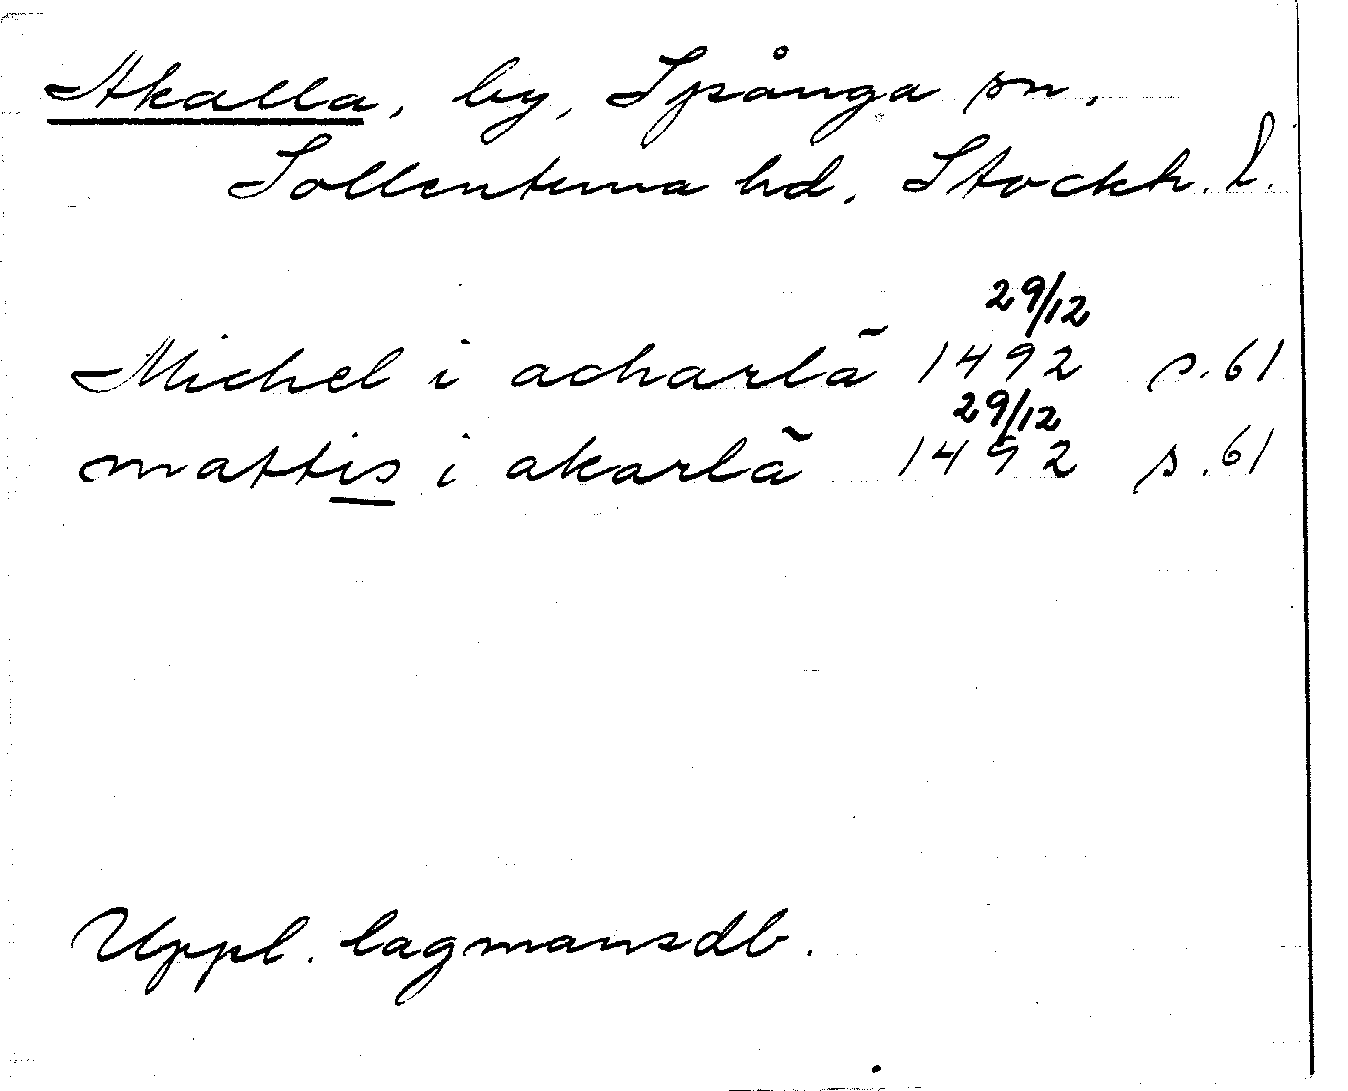 Akalla, by, Spånga sn,
Sollentuna hd. Stockh. l.
29/12
Michel i acharlã 1492 s. 61
29/12
mattis i akarlã 1492 s. 61
Uppl. lagmansdb.